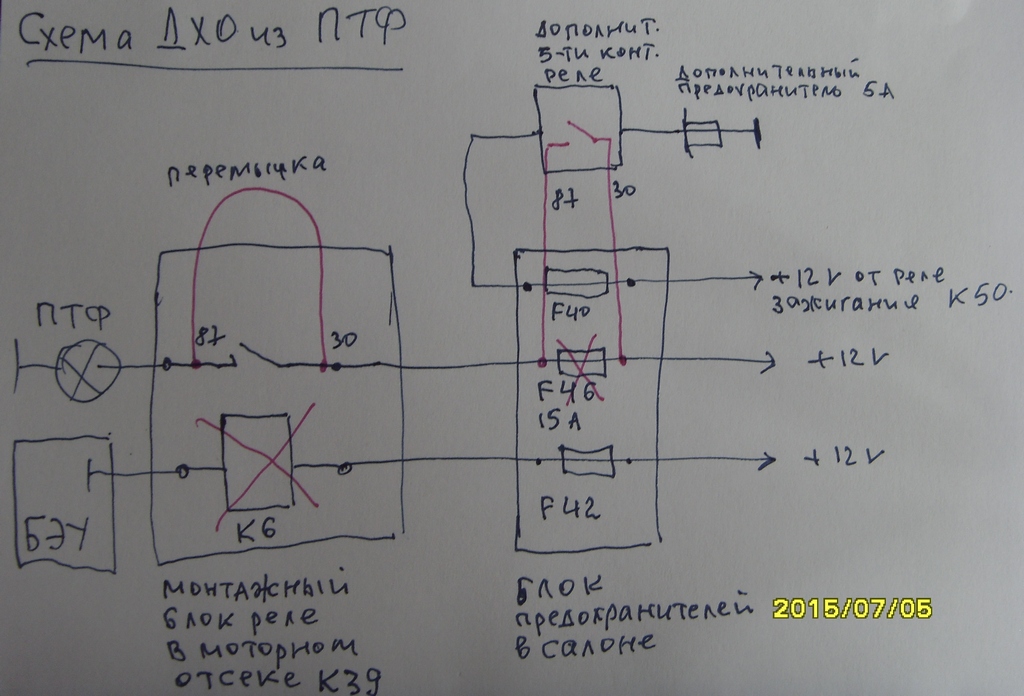 Схема ДХО из ПТФ
дополнит.
5-ти конт.
реле
дополнительный
предохранитель 5А
перемычка
87
30
+12V от реле
зажигания К50.
F40
ПТФ
87
30
+12V
F46
15А
+12V
F42
К6
БЭУ
монтажный
блок реле
в моторном
отсеке К39
блок
предохранителей
в салоне
2015/07/05